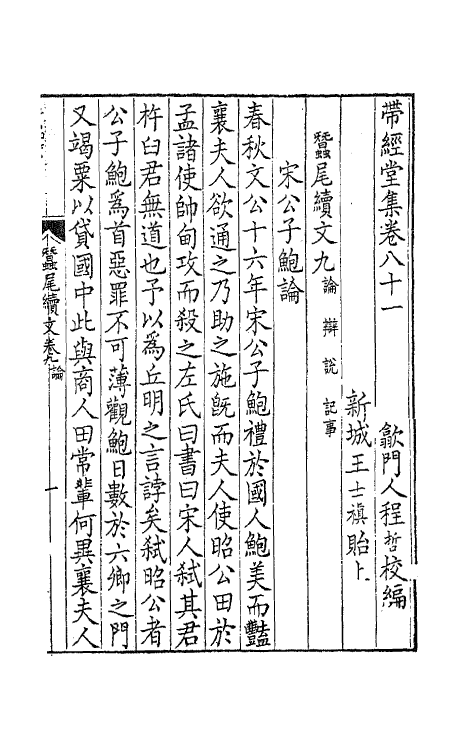 帶經堂集卷八十一　歙門人程哲校編
新城王士禛貽上
蠶尾續文九論 辯 說 記事
宋公子鮑論
春秋文公十六年宋公子鮑禮於國人鮑美而豔
襄夫人欲通之乃助之施旣而夫人使昭公田於
孟諸使帥甸攻而殺之左氏曰書曰宋人弑其君
杵臼君無道也予以爲丘明之言誖矣弑昭公者
公子鮑爲首惡罪不可薄觀鮑日數於六卿之門
又竭粟以貸國中此與商人田常輩何異襄夫人
蠶尾續文卷九 論 一